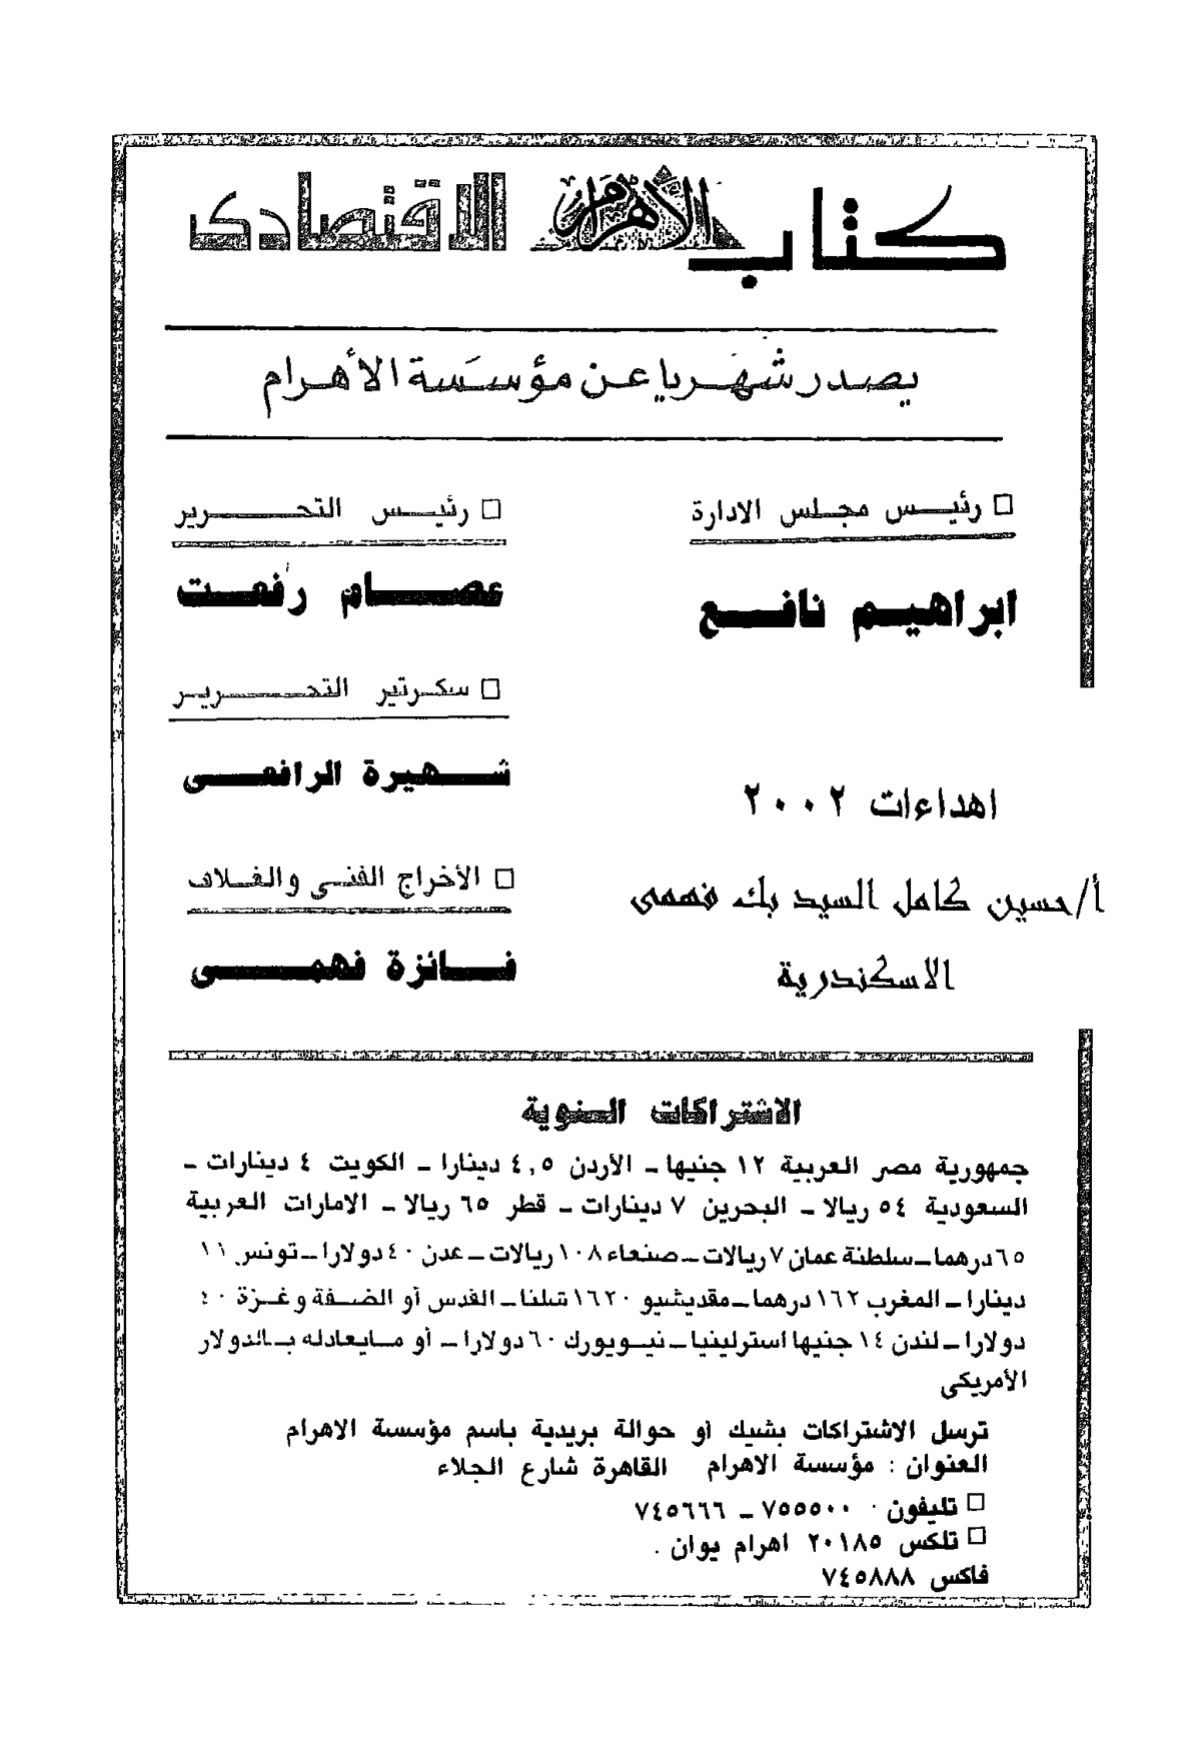 كتاب الأهرام الاقتصادى
يصدر شهريا عن مؤسسة الأهرام
□ رئيس مجلس الادارة
ابراهيم نافع
□ رئيس التحرير
عصام رفعت
□ سكرتير التحرير
شهيرة الرافعى
□ الأخراج الفنى والغلاف
فائزة فهمى
اهداءات ٢٠٠٢
أ/حسين كامل السيد بك فهمى
الاسكندرية
الاشتراكات السنوية
جمهورية مصر العربية ١٢ جنيها ــ الأردن ٤,٥ دينارا ــ الكويت ٤ دينارات ــ
السعودية ٥٤ ريالا ــ البحرين ٧ دينارات ــ قطر ٦٥ ريالا ــ الامارات العربية
٦٥ درهما ــ سلطنة عمان ٧ ريالات ــ صنعاء ١٠٨ ريالات ــ عدن ٤٠ دولارا ــ تونس ١١
دينارا ــ المغرب ١٦٢ درهما ــ مقديشيو ١٦٢٠ شلنا ــ القدس أو الضفة وغزة ٤٠
دولارا ــ لندن ١٤ جنيها استرلينيا ــ نيويورك ٦٠ دولارا ــ أو مايعادله بالدولار
الأمريكى
ترسل الاشتراكات بشيك أو حوالة بريدية باسم مؤسسة الاهرام
العنوان : مؤسسة الاهرام القاهرة شارع الجلاء
□ تليفون ٧٥٥٥٠٠ ــ ٧٤٥٦٦٦
□ تلكس ٢٠١٨٥ اهرام يوان .
فاكس ٧٤٥٨٨٨